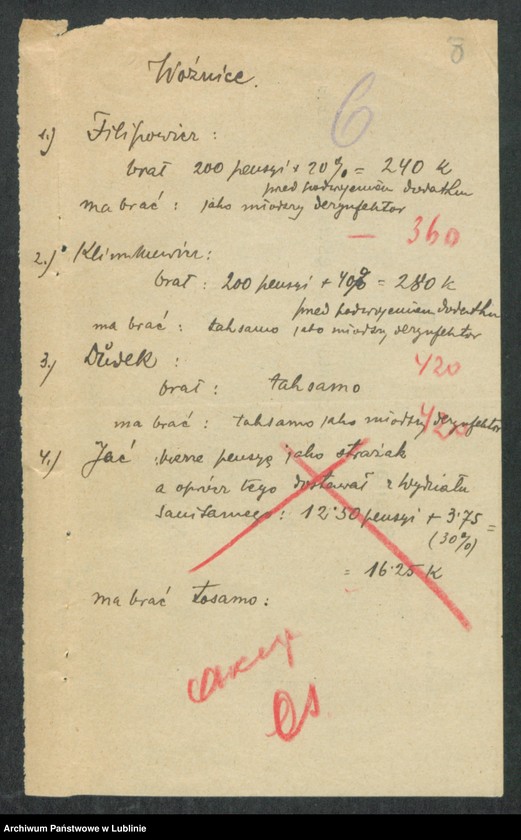 8
Woźnice.
6
1.) Filipowicz :
brał 200 pensyi + 20% = 240 K
pred podwyżeniem dodatku
ma brać : jako młodszy dezynfektor
— 360
2.) Klimkiewicz :
brał : 200 pensyi + 40% = 280 K
pred podwyżeniem dodatku
ma brać : taksamo jako młodszy dezynfektor
3.) Dudek :
420
brał : taksamo
ma brać : taksamo jako młodszy dezynfektor
420
4.) Jać bierze pensyę jako strażak
a oprócz tego dostawał z Wydziału
Sanitarnego : 12·50 pensyi + 3·75 =
(30%)
= 16·25 K
ma brać tosamo :
Archiwum Państwowe w Lublinie